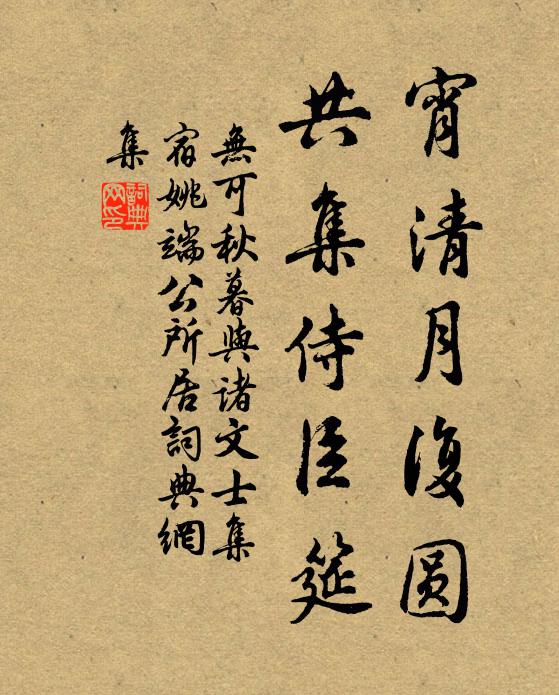 宵清月復圆
共集侍臣筵
無可秋暮與诸文士集
宿姚端公所居詞典網
集
詞典网印